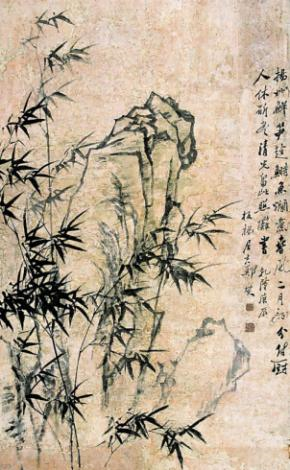 揚州鮮笋趁鰣魚爛煮春風月初分付厨
人休斫盡清光留此照攤書 乾隆庚辰
板橋居士鄭燮